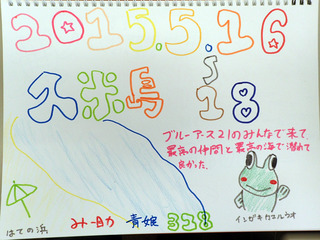 2015.5.16
久米島 ~18
ブルーアース21のみんなで来て
最高の仲間と最高の海で潜れて
良かった。
はての浜
インガキカエルウオ